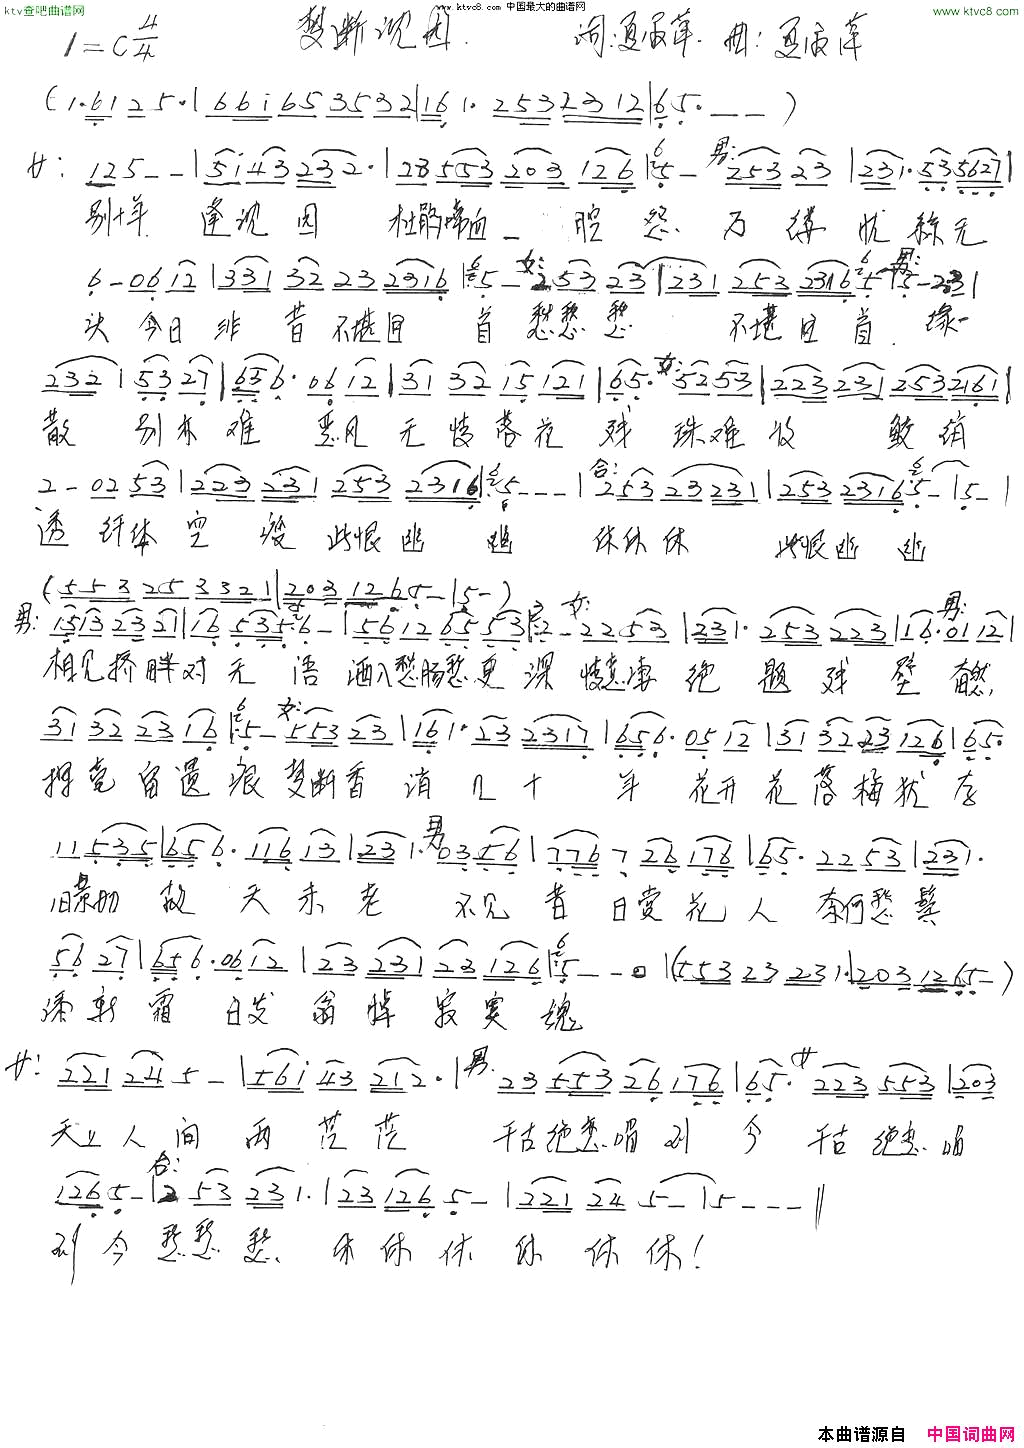 ktv查吧曲谱网
www.ktvc8.com 中国最大的曲谱网
www.ktvc8.com
1=C 4/4 梦断沈园. 词:夏 萍. 曲:夏 萍
(1·6125·|66i653532|161·2532312|65·--)
女: 125--|5i43232·|28553203126|5- 男: 25323|231·535627|
别十年 逢沈园 杜鹃啼血 腔怨 万缕忧 无
6-0612|33132232316|5- 女: 25323|23125323165|男: 5-23|
头 今日非昔不堪回首 愁愁愁 不堪回首. 缘一
23215327|656·0612|313215121|65· 女: 5253|2232312532161|
散 别亦难 恶风无情落花残 珠难收 鲛绡
2-0253|2232312532316|5---|合: 25323231|25323165-|5-|
透 纤体空瘦 此恨幽幽 休休休 此恨幽幽
(553253321|2031265-|5-)
男: 15132321|165356-|5612655 3|2- 女: 2253|231·253223|16·0112|
相见桥畔对无语 酒入愁肠愁更深 凄绝题残壁
31322316|5- 女: 55323|161·232317|656·0512|313223126|65·
留遗痕梦断香消几十年 花开花落梅犹在
11535|656·11613|231· 男: 0356|776726176|65·2253|231·
旧景物 故 天未老 不见昔日赏花人 奈何愁鬓
5627|656·0612|2323123126|5---|(5532323 1·2031265-)
霜 白发翁悼寂寞魂
女: 221245-|56i43212·|男. 2355326176|65· 女 223553|203
天上人间两茫茫 千古绝恋唱到今 千古绝恋唱
1265-|合: 253231·|231265-|221245-|5---‖
到今 愁愁愁 休休休休休休!
本曲谱源自 中国词曲网